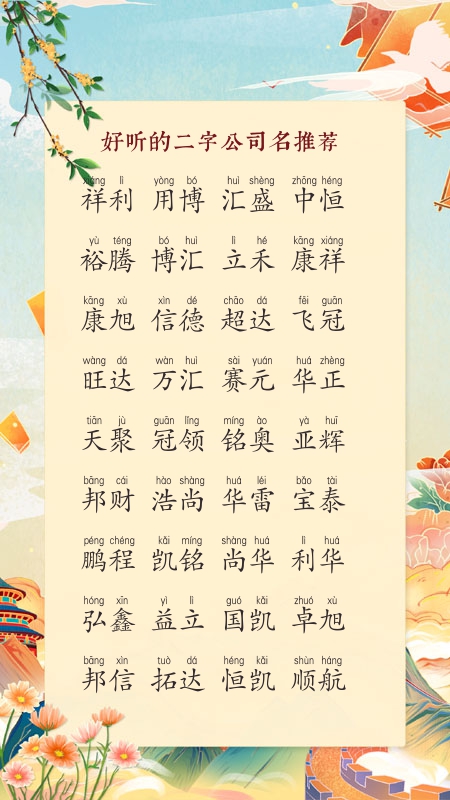 好听的二字公司名推荐
xiáng lì yòng bó huì shèng zhōng héng
祥利 用博 汇盛 中恒
yù téng bó huì lì hé kāng xiáng
裕腾 博汇 立禾 康祥
kāng xù xìn dé chāo dá fēi guān
康旭 信德 超达 飞冠
wàng dá wàn huì sài yuán huá zhèng
旺达 万汇 赛元 华正
tiān jù guān lǐng míng ào yà huī
天聚 冠领 铭奥 亚辉
bāng cái hào shàng huá léi bǎo tài
邦财 浩尚 华雷 宝泰
péng chéng kǎi míng shàng huá lì huá
鹏程 凯铭 尚华 利华
hóng xīn yì lì guó kǎi zhuó xù
弘鑫 益立 国凯 卓旭
bāng xìn tuò dá héng kǎi shùn háng
邦信 拓达 恒凯 顺航